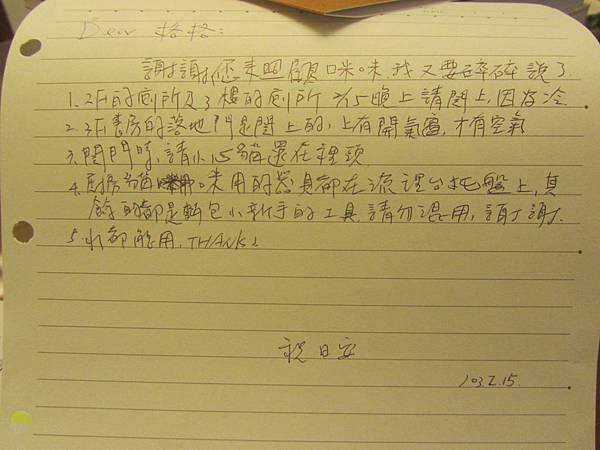 Dear 格格:
謝謝您來照顧咪咪.我又要碎碎說了
1.2F的廁所及3樓的廁所 2/15晚上請關上,因為冷.
2.3F書房的落地門是關上的,上有開氣窗,才有空氣
3.關門時,請小心貓還在裡頭
4.廚房貓咪用的器具都在流理台托盤上,其
餘的都是麵包小新手的工具.請勿混用,謝謝.
5.水都能用,THANKS
祝日安
103.2.15.